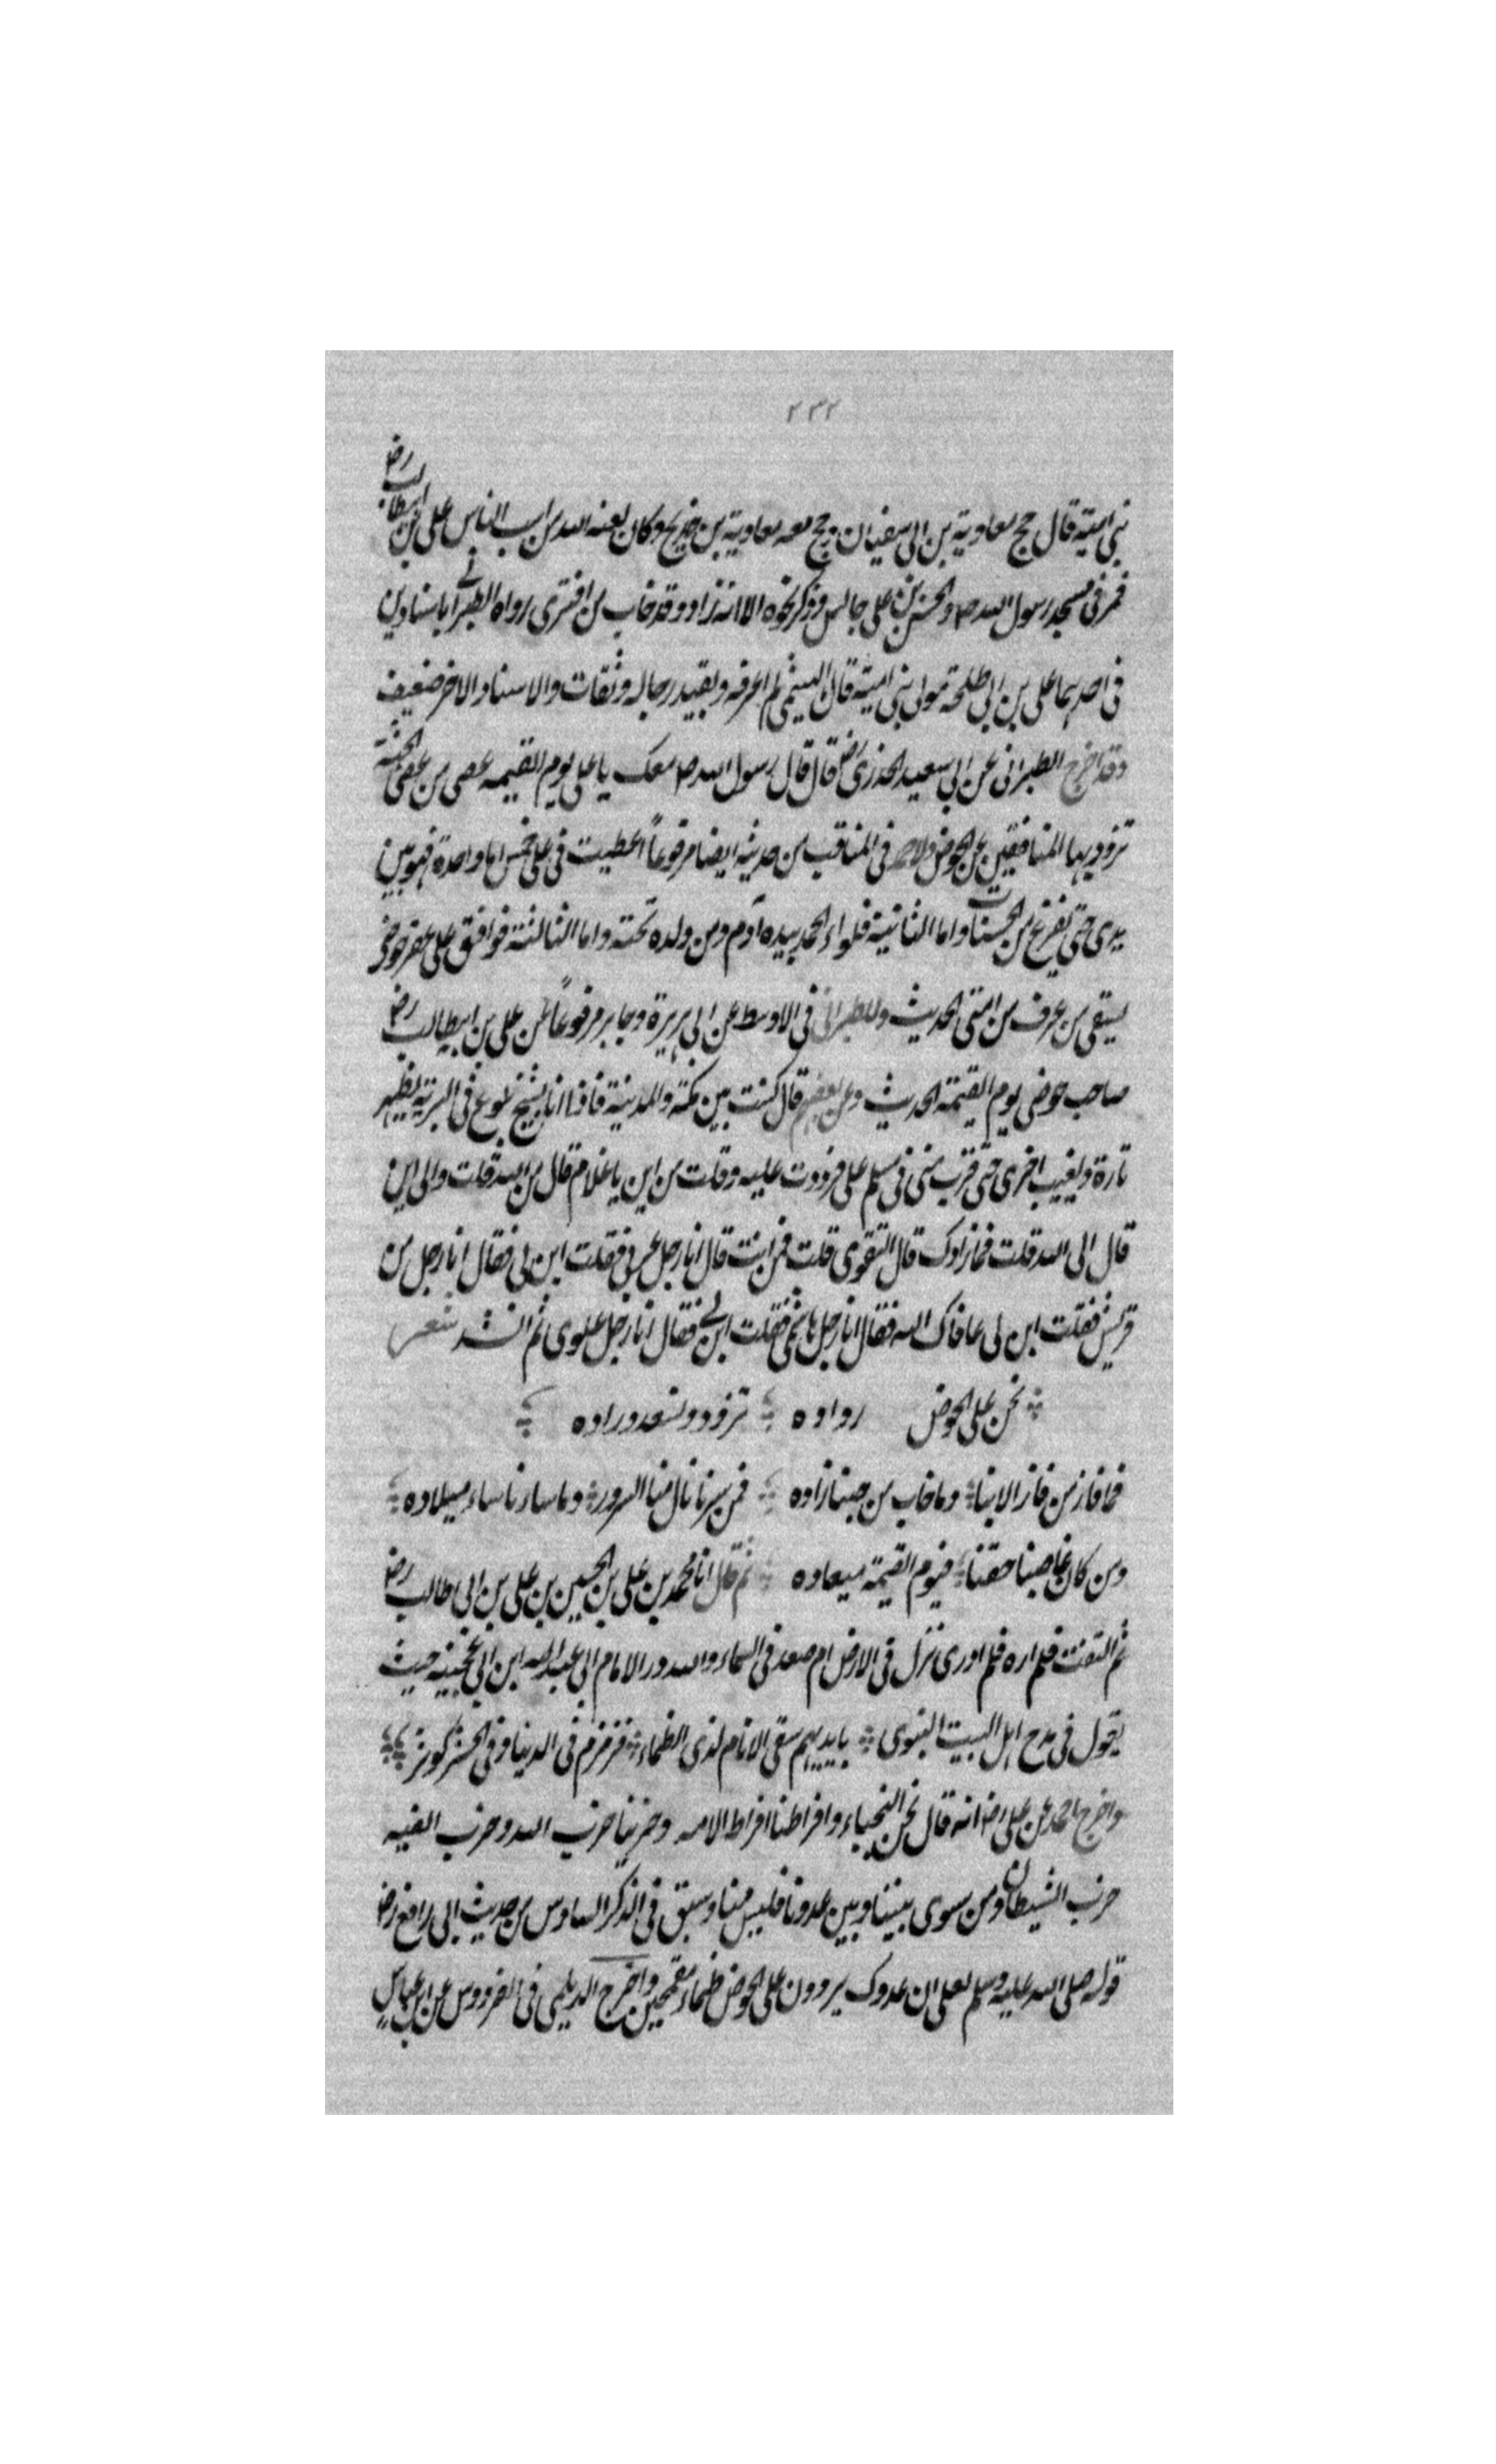 ٢٣٢
بنى امية قال حج معاوية بن ابى سفيان وحج معه معاوية بن خديج وكان لعنه الله من اسب الناس على على بن ابيطالب رض
فمر فى مسجد رسول الله صـ والحسن بن على جالس وذكر نحوه الا انه زاد وقد خاب من افترى رواه الطبرانى باسنادين
فى احدهما على بن ابى طلحة مولى بنى امية قال الهيثمى لم اعرفه وبقيه رجاله وثقات والاسناد الاخر ضعيف
وقد اخرج الطبرانى عن ابى سعيد الخدرى رض قال قال رسول الله صـ معك يا على يوم القيمه عصى من عصى الجنة
تزود بها المنافقين عن الحوض ولاحمد فى المناقب من حديثه ايضا مرفوعاً اعطيت فى على خمس اما واحدة فهو بين
يدى حتى يفرغ من الحسنات واما الثانية فلواء الحمد بيده آدم ومن ولده تحته واما الثالثة فواقف على عقر حوضى
يسقى من عرف من امتى الحديث وللطبرانى فى الاوسط عن ابى هريرة وجابر مرفوعاً على بن ابيطالب رض
صاحب حوضى يوم القيمة الحديث وعن بعضهم قال كنت بين مكة والمدينة فاذا انا بشيخ يلوع فى البرية يظهر
تارة ويغيب اخرى حتى قرب منى فسلم على فرددت عليه وقلت من اين يا غلام قال من الله قلت والى اين
قال الى الله قلت فما زادك قال التقوى قلت فمن انت قال انا رجل عربى فقلت ابن لى فقال انا رجل من
قريش فقلت ابن لى عافاك الله فقال انا رجل هاشمى فقلت ابن لى فقال انا رجل علوى ثم انشد شعر
نحن على الحوض رواده تزود ونسعد وراده
فما فاز من فاز الا بنا وما خاب من حبنا زاده فمن سرنا نال منا السرور وما ساءنا ساء ميلاده
ومن كان غاصبنا حقنا فيوم القيمة ميعاده ثم قال انا محمد بن على بن الحسين بن على بن ابى طالب رض
ثم التفت فلم اره فلم ادرى نزل فى الارض ام صعد فى السماء ولله در الامام ابى عبد الله ابن ابى حيث
يقول فى مدح اهل البيت النبوى بايديهم سقى الانام لذى الظماء فزمزم فى الدنيا وفى الحشر كوثر
واخرج احمد عن على رض انه قال نحن النجباء وافراطنا افراط الامه وحزبنا حزب الله وحزب الفيه
حزب الشيطان ومن سوى بيننا وبين عدونا فليس منا وسبق فى الذكر السادس من حديث ابى رافع رض
قوله صلى الله عليه وسلم لعلى ان عدوك يردون على الحوض ظماء مقمحين واخرج الديلمى فى الفردوس عن ابن عباس